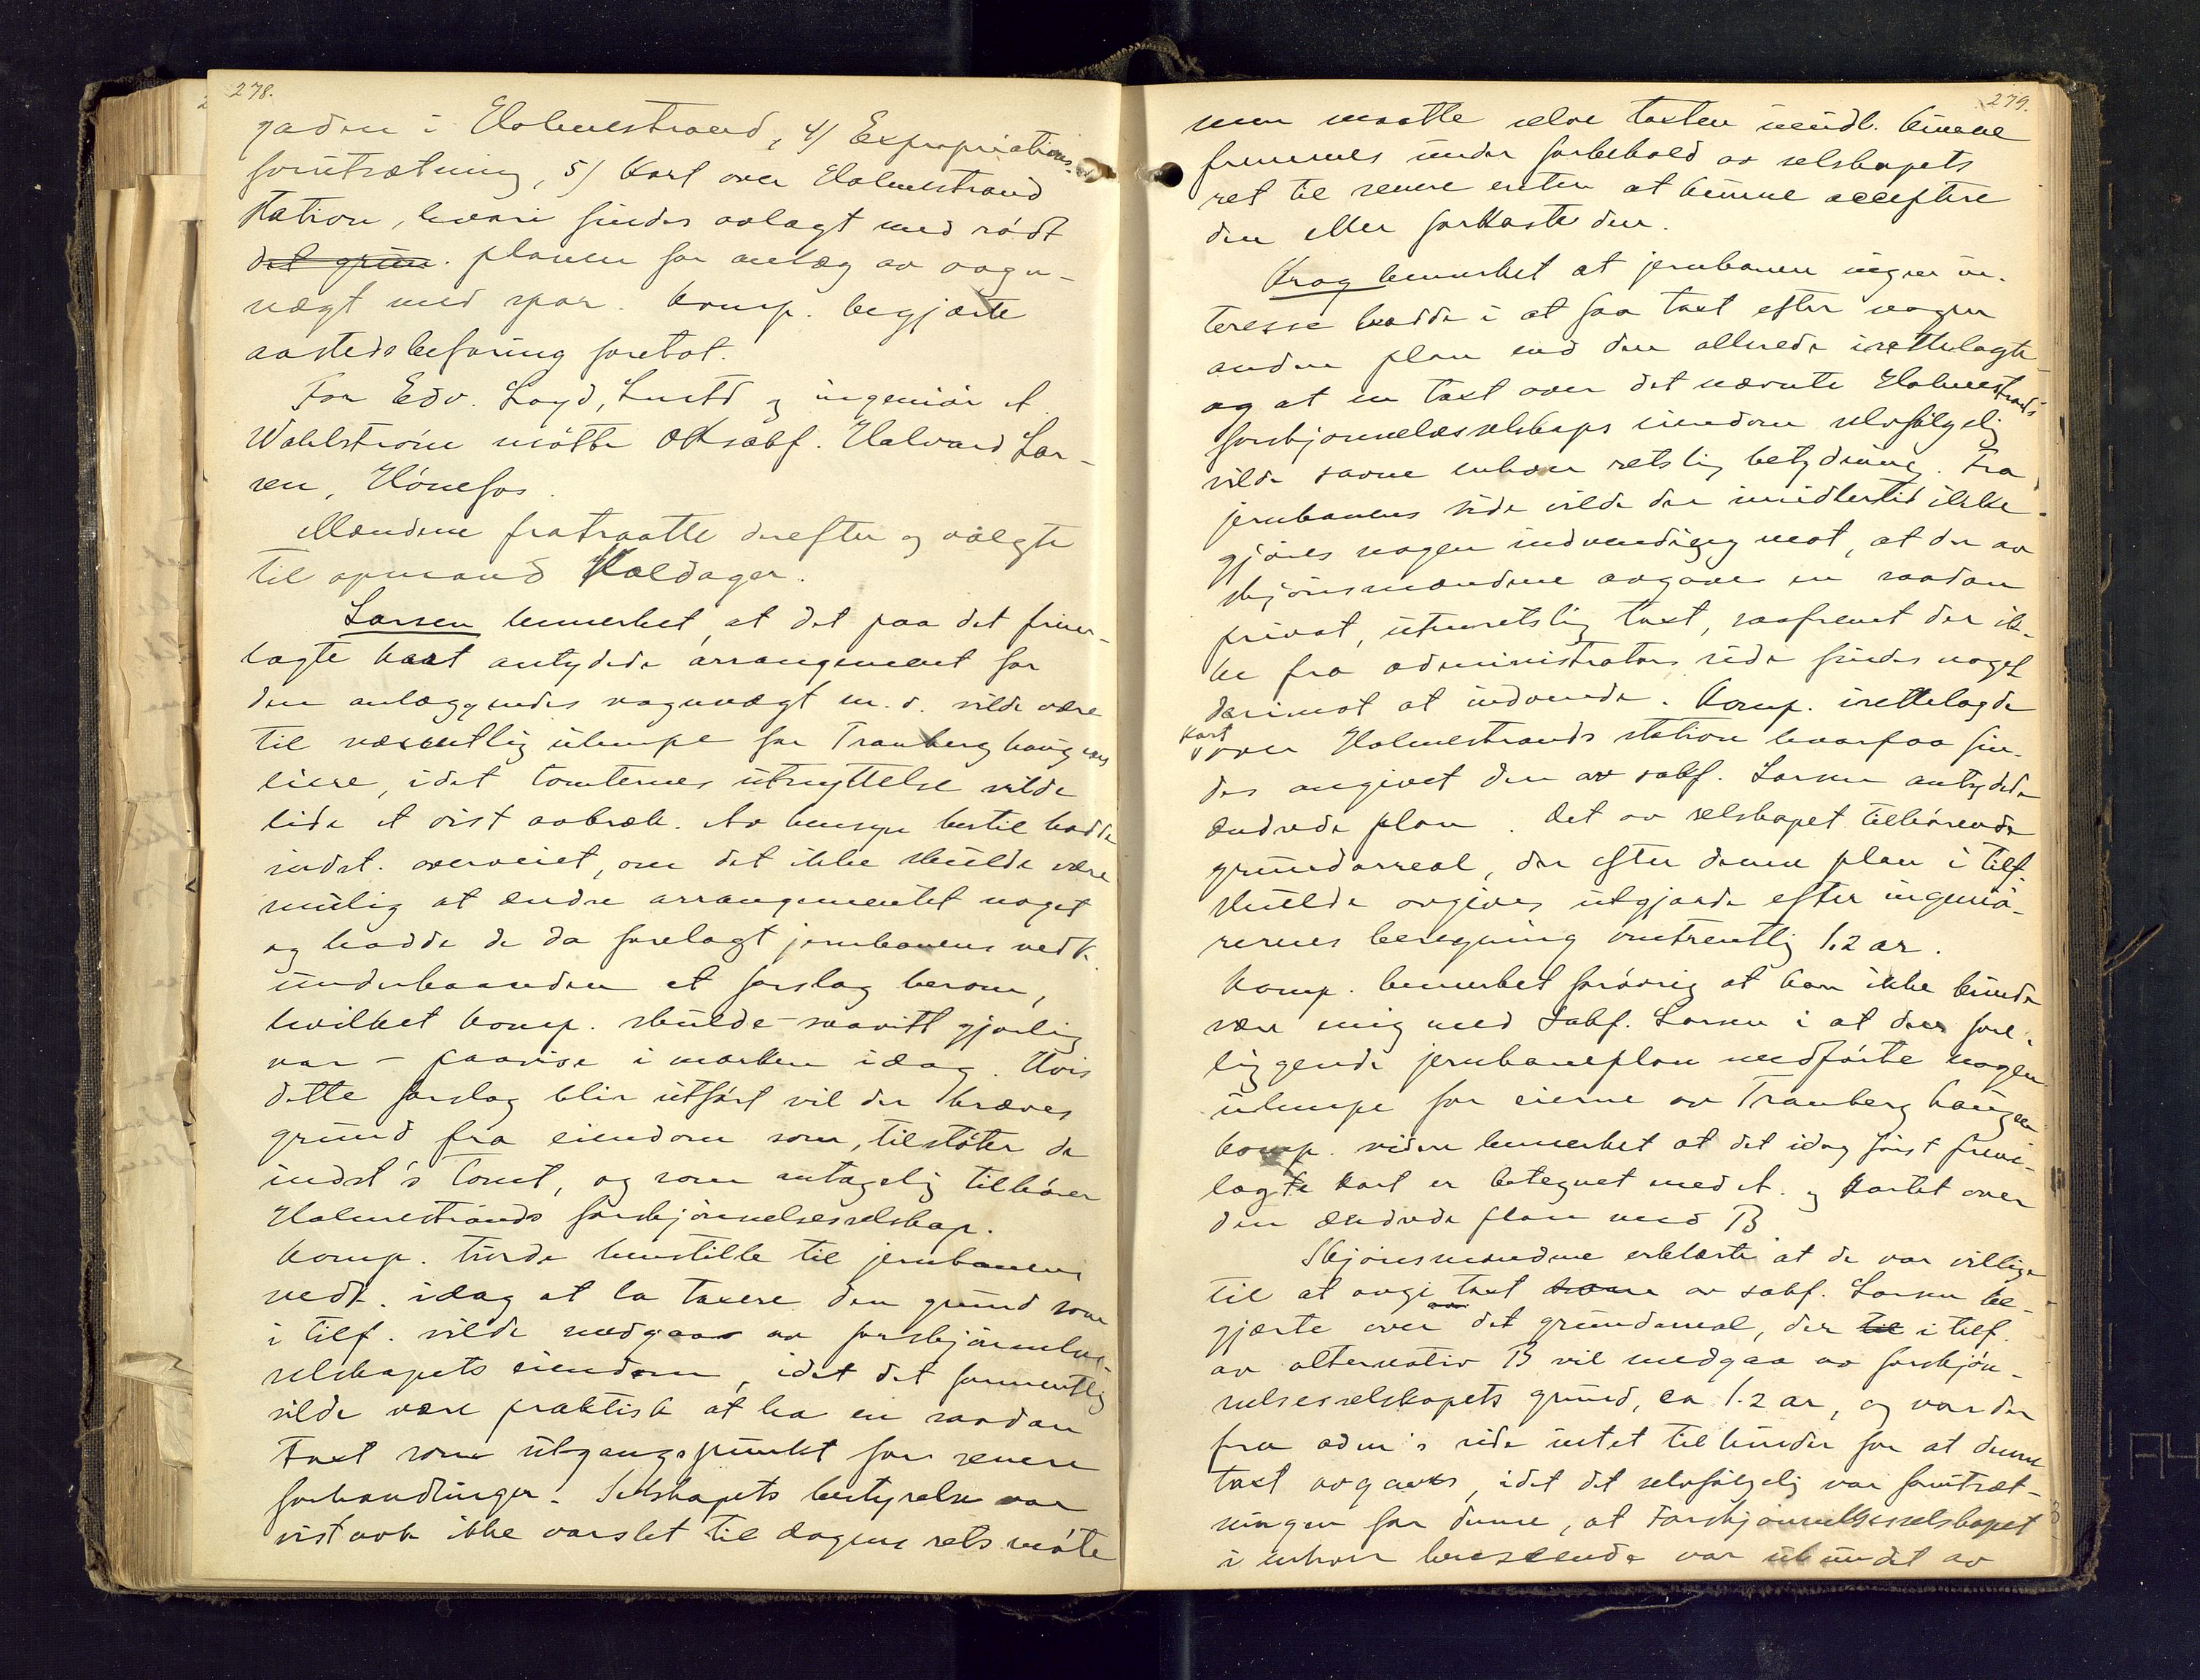 278.
gaden i Holmestrand, 4/ Expropriations-
forutsætning, 5/ kart over Holmestrand
station, hvori findes avlagt med rødt
det grun. planen for anlæg av vogn-
vægt med spor. Komp. begjærte
aastedsbefaring foretat.
For Edv. Loyd, Lustd og ingeniør A.
Wahlstrøm møtte O.R.sakf. Halvard Lar-
sen, Hønefos.
Mændene fratraatte derefter og valgte
til opmand Haldager.
Larsen bemerket, at det paa det frem-
lagte kart antydede arrangement for
den anlæggendes vognvægt m. v. vilde være
til væsentlig ulempe for Tranberghaugens
eiere, idet tomternes utnyttelse vilde
lide et vist avbræk. Av hensyn hertil hadde
indst. overveiet, om det ikke skulde være
mulig at ændre arrangementet noget
og hadde de da forelagt jernbanens vedk.
underhaanden et forslag herom,
hvilket komp. skulde - saavitt gjørlig
var - paavise i marken idag. Hvis
dette forslag blir utført vil der kræves
grund fra eiendom som, tilstøter de
indst's tomt, og som antagelig tilhører
Holmestrands forskjønnelsesselskap.
Komp. turde henstille til jernbanens
vedk. idag at la taxere den grund som
i tilf. vilde medgaa av forskjønnelses-
selskapets eiendom, idet det formentlig
vilde være praktisk at ha en saadan
taxt som utgangspunkt for senere
forhandlinger. Selskapets bestyrelse var
vistnok ikke varslet til dagens retsmøte
279.
men maatte selve taxten uendt. kunne
fremmes under forbehold av selskapets
ret til senere enten at kunne acceptere
den eller forkaste den.
Krag bemerket at jernbanen ingen in-
teresse hadde i at faa taxt efter nogen
anden plan end den allerede irettelagte
og at en taxt over det nævnte Holmestrands
forskjønnelsesselskaps eiendom selvfølgelig
vilde savne enhver retslig betydning. Fra
jernbanens side vilde der imidlertid ikke
gjøres nogen indvending mot, at der av
skjønsmændene avgaves en saadan
privat, utenretslig taxt, saafremt der ik-
ke fra administrators side findes noget
derimot at indvende. Komp. irettelagde
kart
over Holmestrands station hvorpaa fin-
des angivet den av sakf. Larsen antydede
ændrede plan. Det av selskapet tilhørende
grundarreal, der efter denne plan i tilf.
skulde avgives utgjorde efter ingeniø-
rernes beregning omtrentlig 1.2 ar.
Komp. bemerket forøvrig at han ikke kunde
være enig med Sakf. Larsen i at den fore-
liggende jernbaneplan medførte nogen
ulempe for eierne av Tranberghaugen
komp. videre bemerket at det idag først frem-
lagte kart er betegnet med A. og kartet over
den ændrede plan med B
Skjønsmændene erklærte at de var villige
til at avgi taxt som av sakf. Larsen be-
gjærte over det grundareal, der til i tilf.
av alternativ B vil medgaa av forskjøn-
nelsesselskapets grund, ca 1.2 ar, og var der
fra adm's side intet til hinder for at denne
taxt avgaves, idet det selvfølgelig var forutsæt-
ningen for denne, at Forskjønnelsesselskapet
i enhver henseende var ubundet av